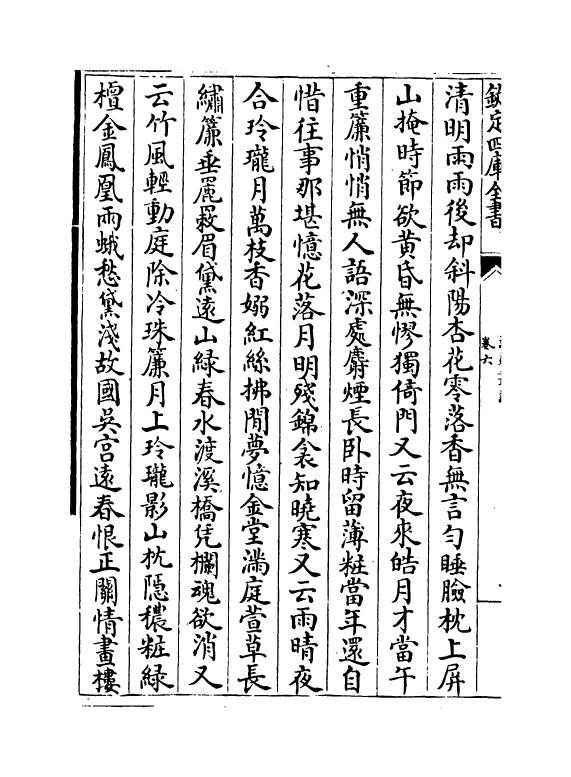 欽定四庫全書
卷六
清明雨雨後却斜陽杏花零落香無言勻睡臉枕上屏
山掩時節欲黄昏無憀獨倚門又云夜來皓月才當午
重簾悄悄無人語深處麝煙長卧時留薄粧當年還自
惜往事那堪憶花落月明殘錦衾知曉寒又云雨晴夜
合玲瓏月萬枝香嫋紅絲拂閒夢憶金堂滿庭萱草長
繡簾垂罣罬眉黛遠山緑春水渡溪橋凭欄魂欲消又
云竹風輕動庭除冷珠簾月上玲瓏影山枕隱穠粧緑
檀金鳳凰雨蛾愁黛淺故國吳宫遠春恨正關情畫樓